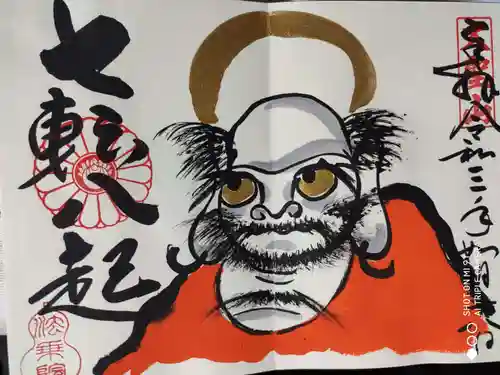 奉拝 令和三年
七転八起
法乗院
SHOT ON MI 9
AI TRIPLE CAMERA